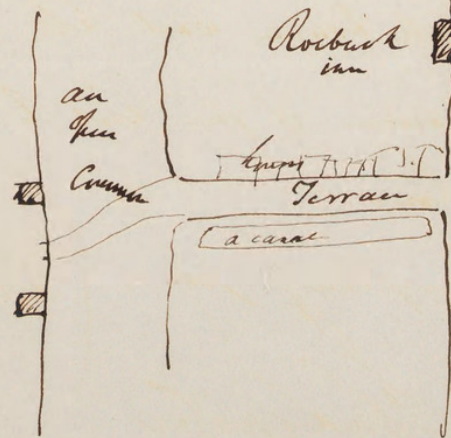 Roebuck
inn
an
open
Common
Terrace
a canal